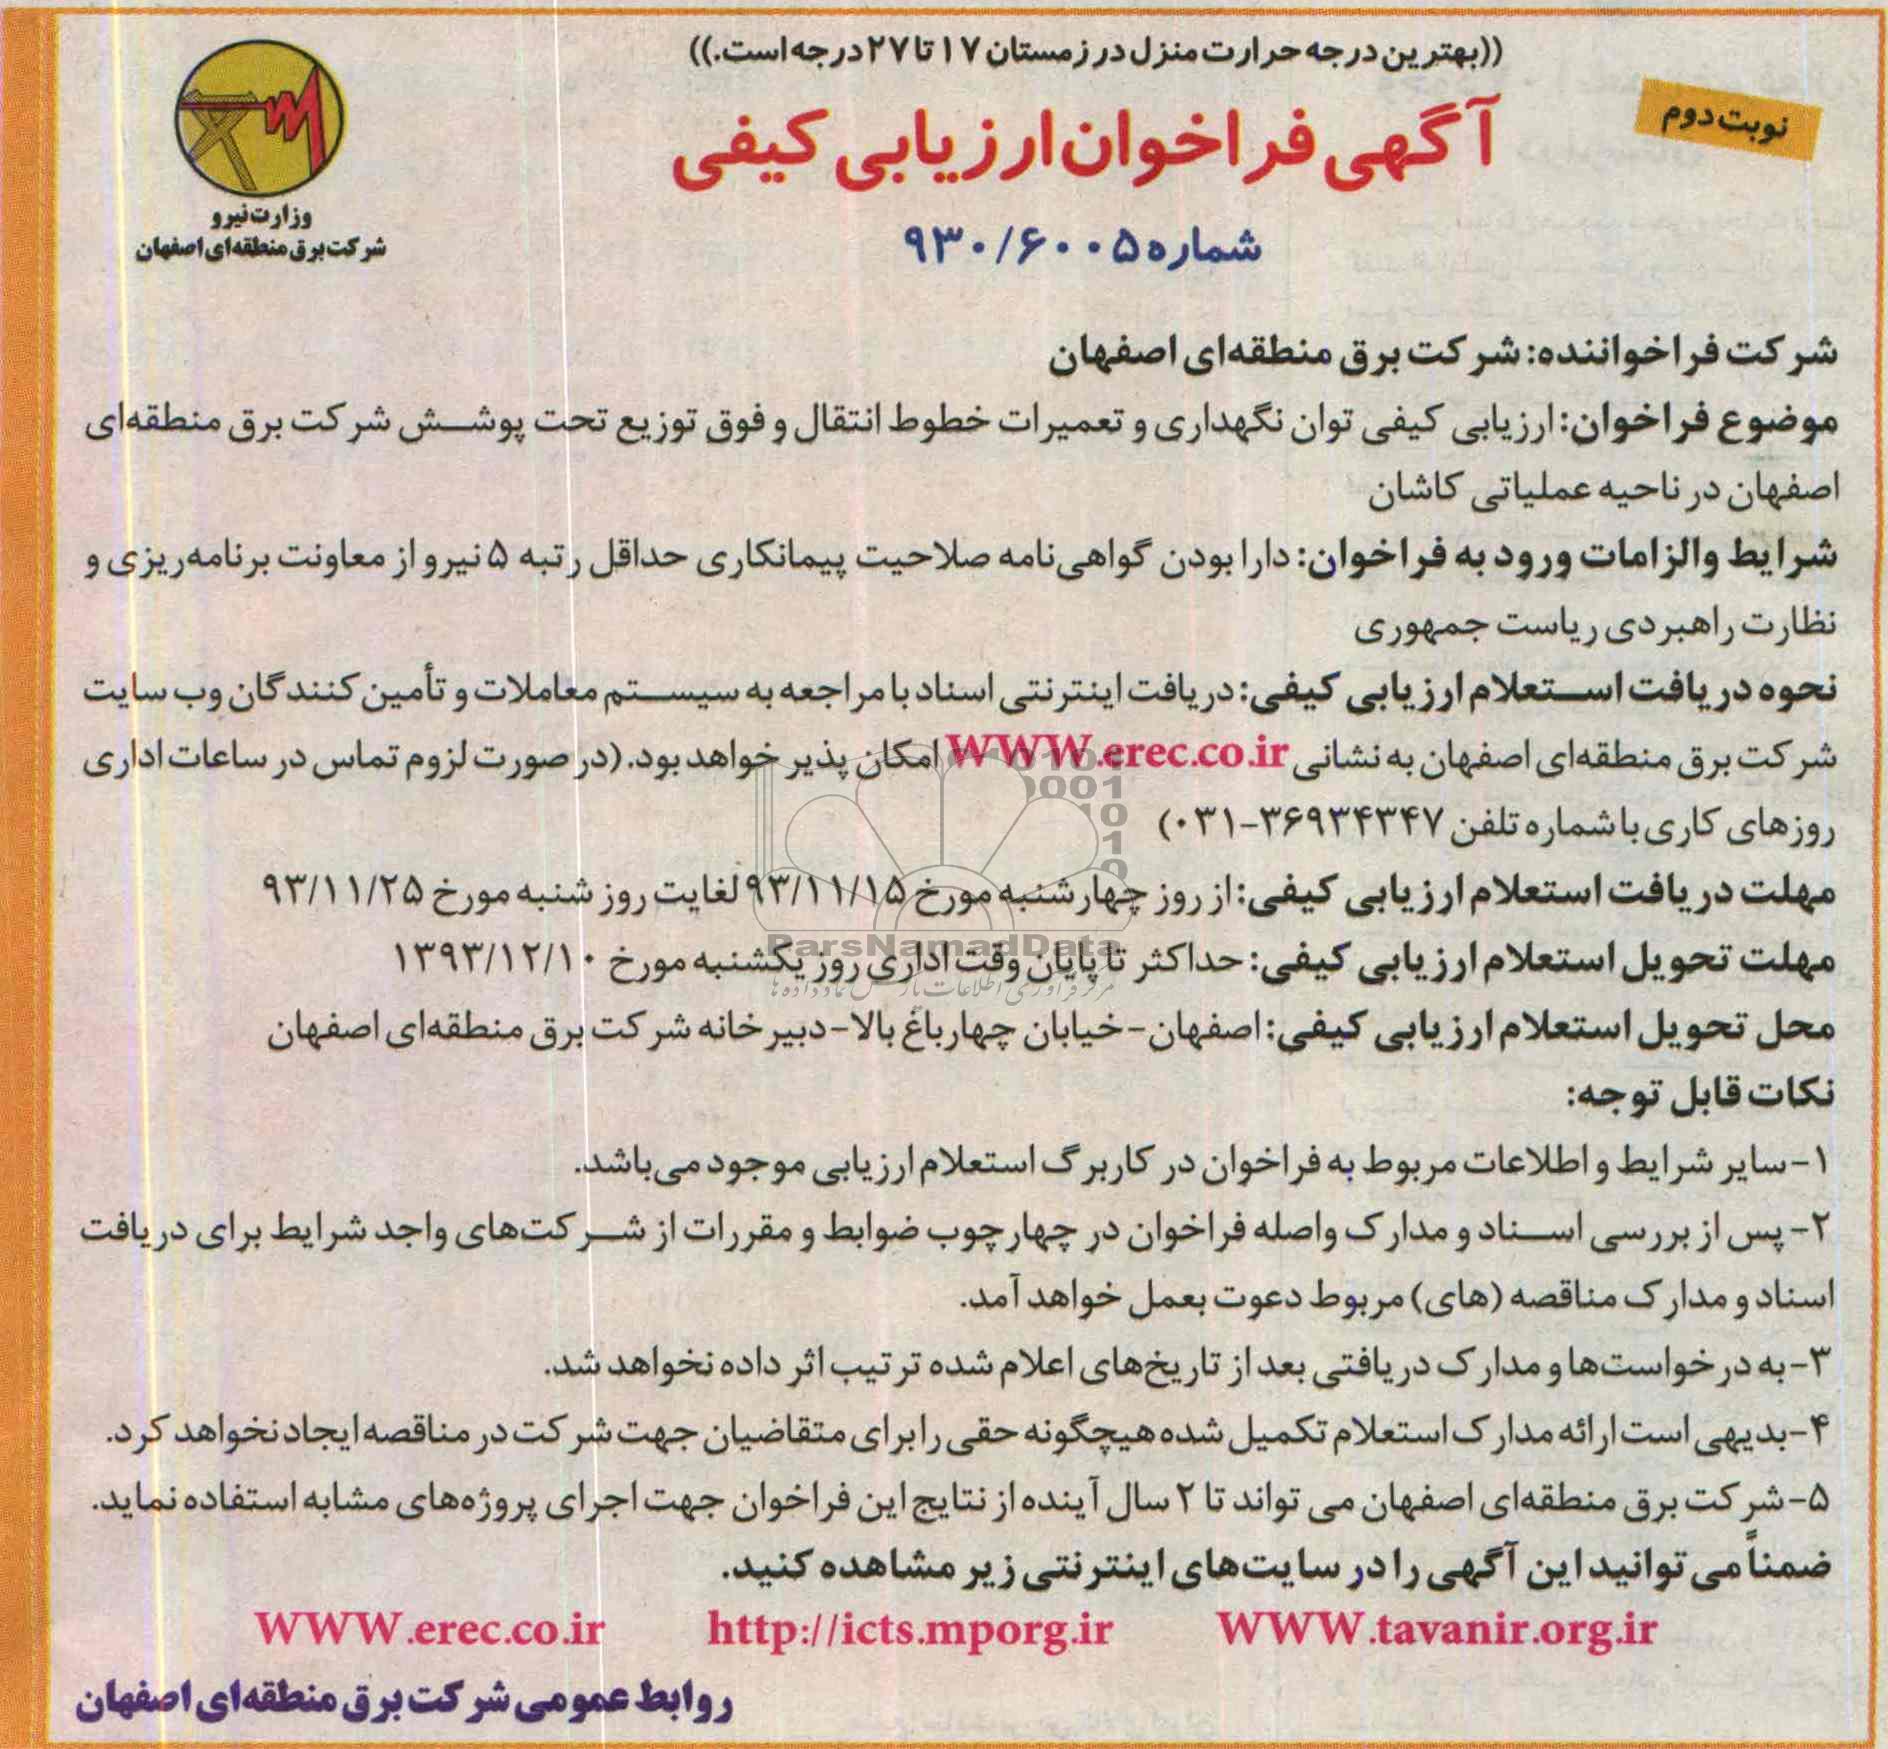 ((بهترین درجه حرارت منزل در زمستان ۱۷ تا ۲۷ درجه است.))
نوبت دوم
آگهی فراخوان ارزیابی کیفی
شماره ۹۳۰/۶۰۰۵
وزارت نیرو
شرکت برق منطقه‌ای اصفهان
شرکت فراخواننده: شرکت برق منطقه‌ای اصفهان
موضوع فراخوان: ارزیابی کیفی توان نگهداری و تعمیرات خطوط انتقال و فوق توزیع تحت پوشش شرکت برق منطقه‌ای
اصفهان در ناحیه عملیاتی کاشان
شرایط و الزامات ورود به فراخوان: دارا بودن گواهی‌نامه صلاحیت پیمانکاری حداقل رتبه ۵ نیرو از معاونت برنامه‌ریزی و
نظارت راهبردی ریاست جمهوری
نحوه دریافت استعلام ارزیابی کیفی: دریافت اینترنتی اسناد با مراجعه به سیستم معاملات و تأمین کنندگان وب سایت
شرکت برق منطقه‌ای اصفهان به نشانی WWW.erec.co.ir امکان پذیر خواهد بود. (در صورت لزوم تماس در ساعات اداری
روزهای کاری با شماره تلفن ۳۶۹۳۴۳۴۷-۰۳۱)
مهلت دریافت استعلام ارزیابی کیفی: از روز چهارشنبه مورخ ۹۳/۱۱/۱۵ لغایت روز شنبه مورخ ۹۳/۱۱/۲۵
مهلت تحویل استعلام ارزیابی کیفی: حداکثر تا پایان وقت اداری روز یکشنبه مورخ ۱۳۹۳/۱۲/۱۰
ParsNamadData
مرکز فرآوری اطلاعات پارس نماد داده ها
محل تحویل استعلام ارزیابی کیفی: اصفهان-خیابان چهارباغ بالا-دبیرخانه شرکت برق منطقه‌ای اصفهان
نکات قابل توجه:
۱-سایر شرایط و اطلاعات مربوط به فراخوان در کاربرگ استعلام ارزیابی موجود می‌باشد.
۲- پس از بررسی اسناد و مدارک واصله فراخوان در چهارچوب ضوابط و مقررات از شرکت‌های واجد شرایط برای دریافت
اسناد و مدارک مناقصه (های) مربوط دعوت بعمل خواهد آمد.
۳-به درخواست‌ها و مدارک دریافتی بعد از تاریخ‌های اعلام شده ترتیب اثر داده نخواهد شد.
۴-بدیهی است ارائه مدارک استعلام تکمیل شده هیچگونه حقی را برای متقاضیان جهت شرکت در مناقصه ایجاد نخواهد کرد.
۵-شرکت برق منطقه‌ای اصفهان می تواند تا ۲ سال آینده از نتایج این فراخوان جهت اجرای پروژه‌های مشابه استفاده نماید.
ضمناً می توانید این آگهی را در سایت‌های اینترنتی زیر مشاهده کنید.
WWW.tavanir.org.ir http://icts.mporg.ir WWW.erec.co.ir
روابط عمومی شرکت برق منطقه‌ای اصفهان